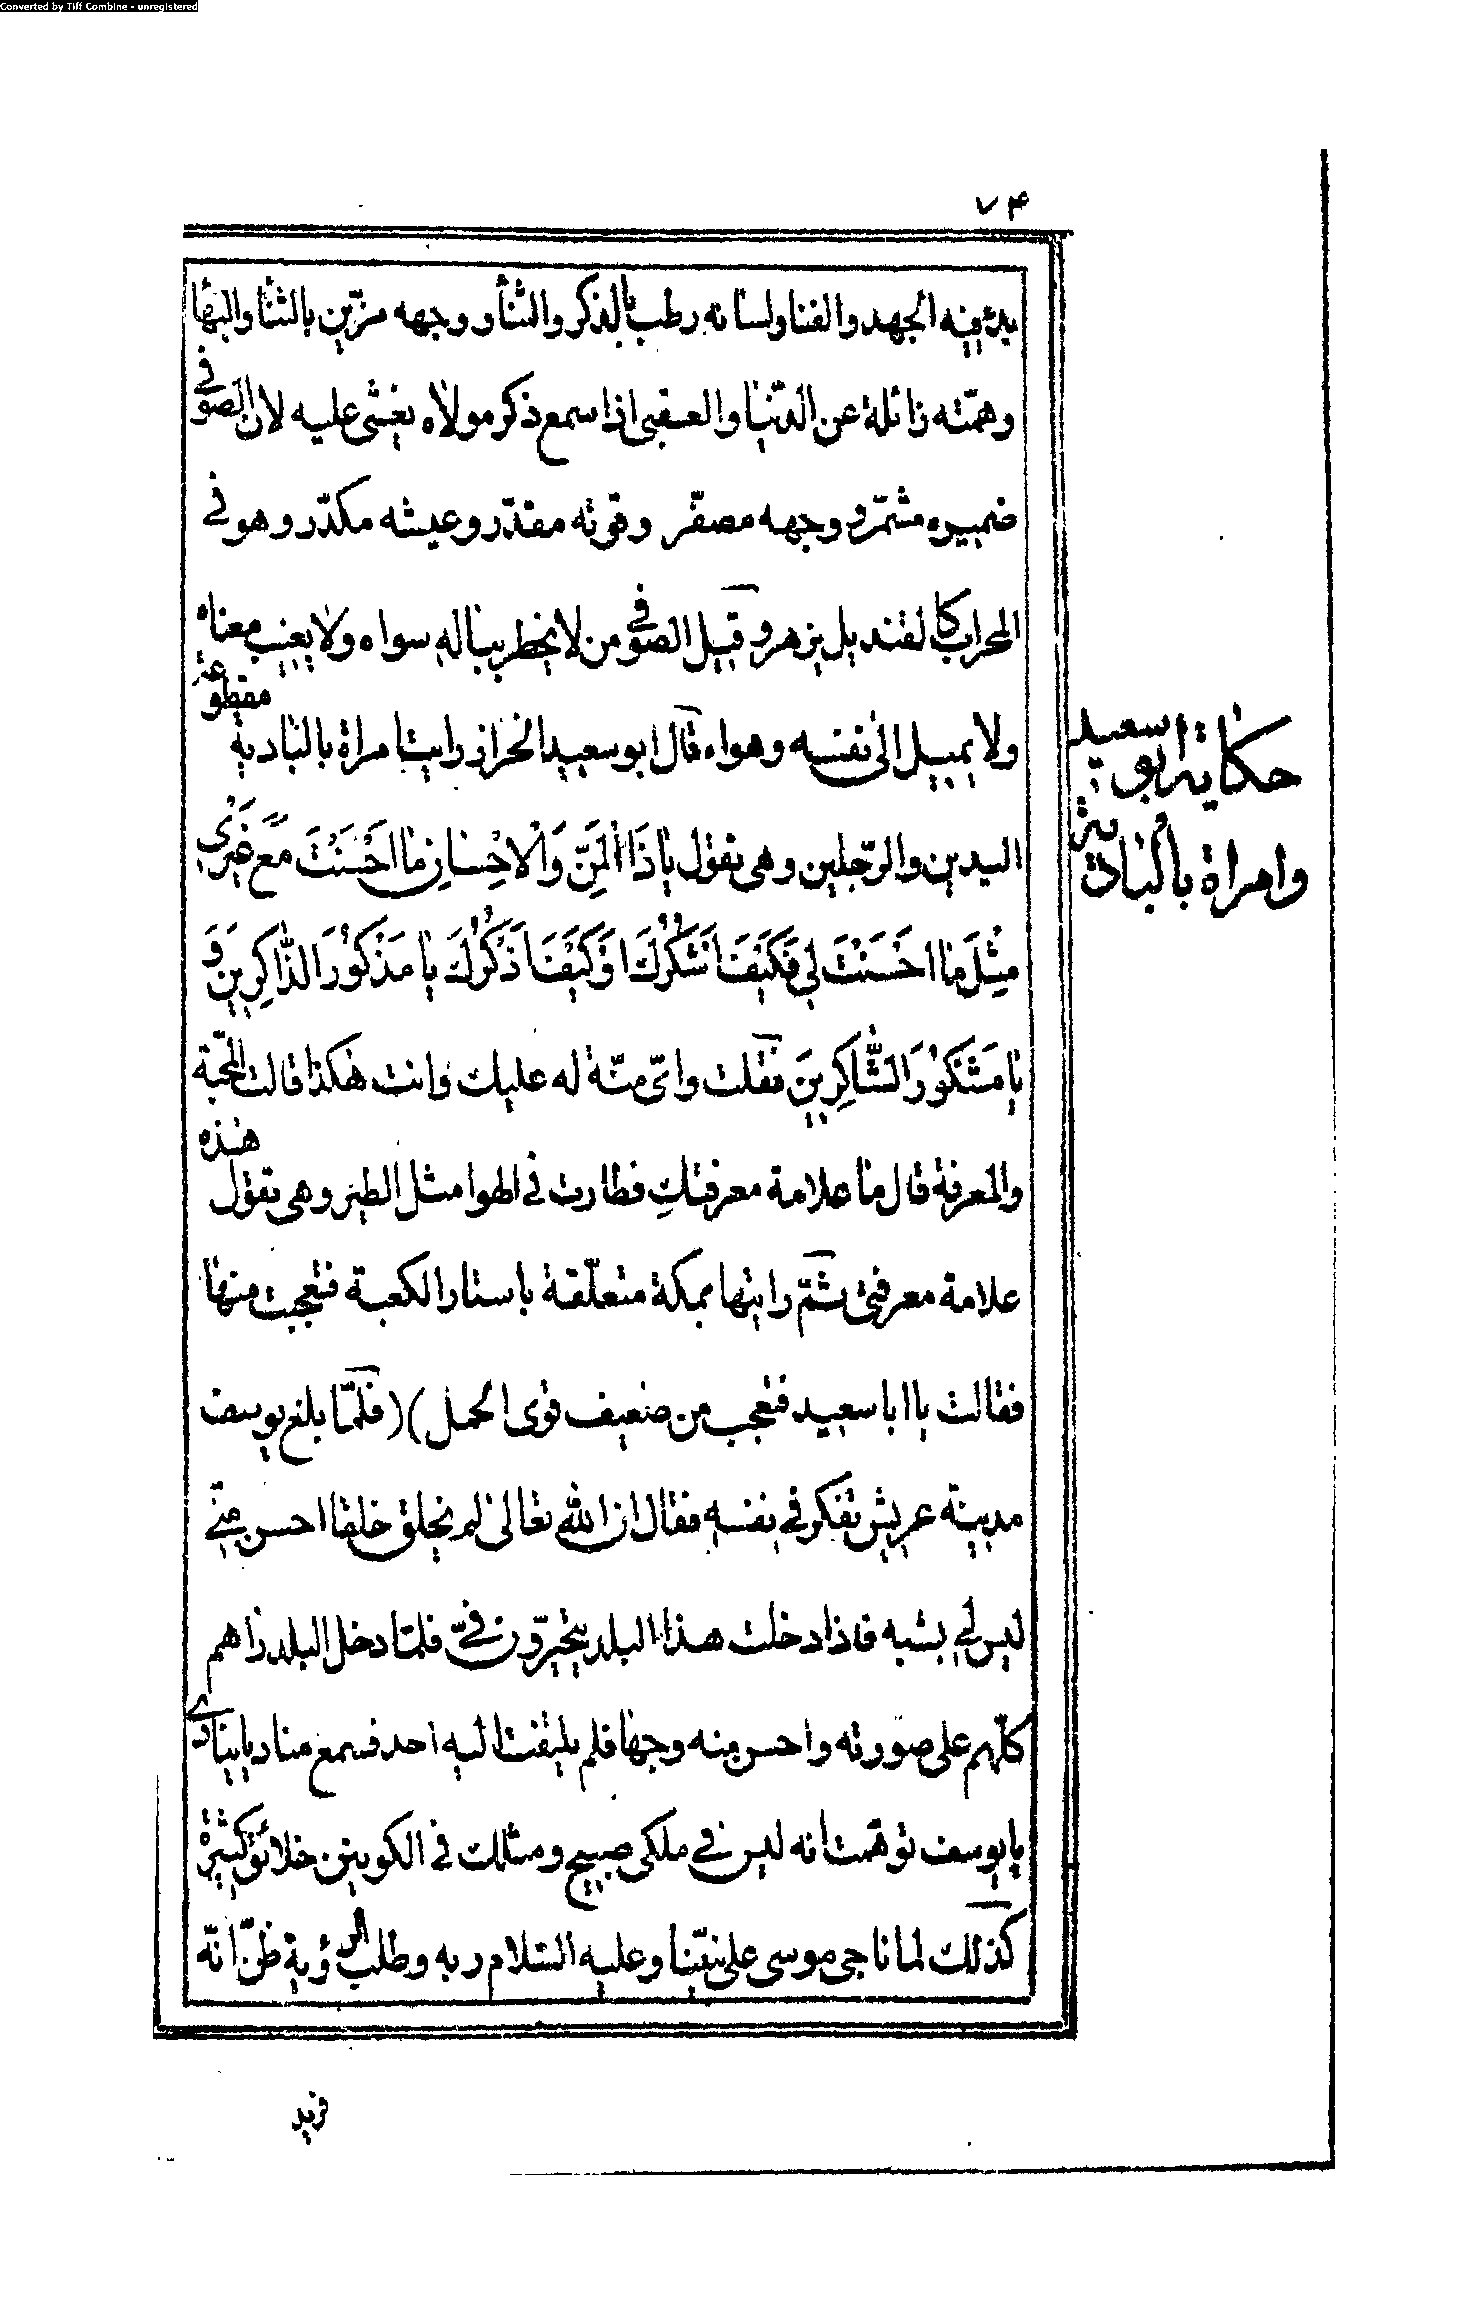 Converted by Tiff Combine - unregistered
٧۴
بدنه فيه الجهد والفنا ولسانه رطب بالذكر والثنأ ووجهه مزّين بالثنأ والبهأ
وهمّته زائلة عن الدّنيا والعقبى اذا سمع ذكر مولاه يغشى عليه لان الصوفى
ضميره مشمّر ووجهه مصفّر وقوته مقدّر وعيشه مكدّر وهو فى
المحراب كالقنديل يزهر وقيل الصوفى من لا يخطر بباله سواه ولا يغيب معناه
ولا يميل الى نفسه وهواه قال ابو سعيد الخراز رايت امراة بالبادية مقطوعة
اليدين والرّجلين وهى تقول يَا ذَا الْمَنِّ وَالْاِحْسَانِ مَا اَحْسَنْتَ مَعَ غَيْرِى
مِثْلَ مَا اَحْسَنْتَ لِى فَكَيْفَ اَشْكُرُكَ اَوْ كَيْفَ اَذْكُرُكَ يَا مَذْكُوْرَ الذَّاكِرِيْنَ وَ
يَا مَشْكُوْرَ الشَّاكِرِيْنَ فقلت واىّ منّة له عليك وانت هكذا قالت المحبّة
والمعرفة قال ما علامة معرفتكِ فطارت فى الهوا مثل الطير وهى تقول هذه
علامة معرفتى ثمّ رايتها بمكة متعلّقة باستار الكعبة فتعجبت منها
فقالت يا ابا سعيد فتعجب من ضعيف قوى الحمل )( فلمّا بلغ يوسف
مدينة عريش تفكر فى نفسه فقال ان اللّه تعالى لم يخلق خلقا احسن منّى
ليس لى بشبه فاذا دخلت هذا البلد يتحيّرون فىّ فلمّا دخل البلد راهم
كلّهم على صورته واحسن منه وجها فلم يلتفت اليه احد فسمع مناديا ينادى
يا يوسف توهّمت انه ليس فى ملكى صبيح ومثلك فى الكونين خلائق كثيرة
كذلك لما ناجى موسى على نبيّنا وعليه السّلام ربه وطلب الرؤية ظنّ انّه
حكاية ابو سعيد
وامراة بالبادية
فريد